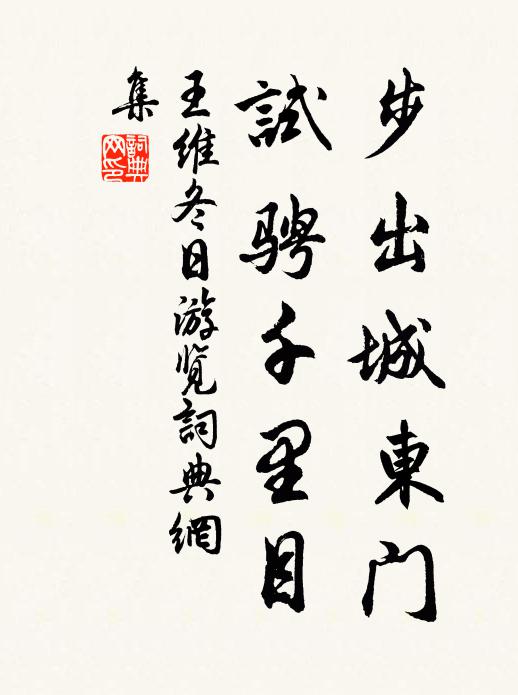 步出城東門
試骋千里目
王维冬日游览詞典網
集
詞典
网印